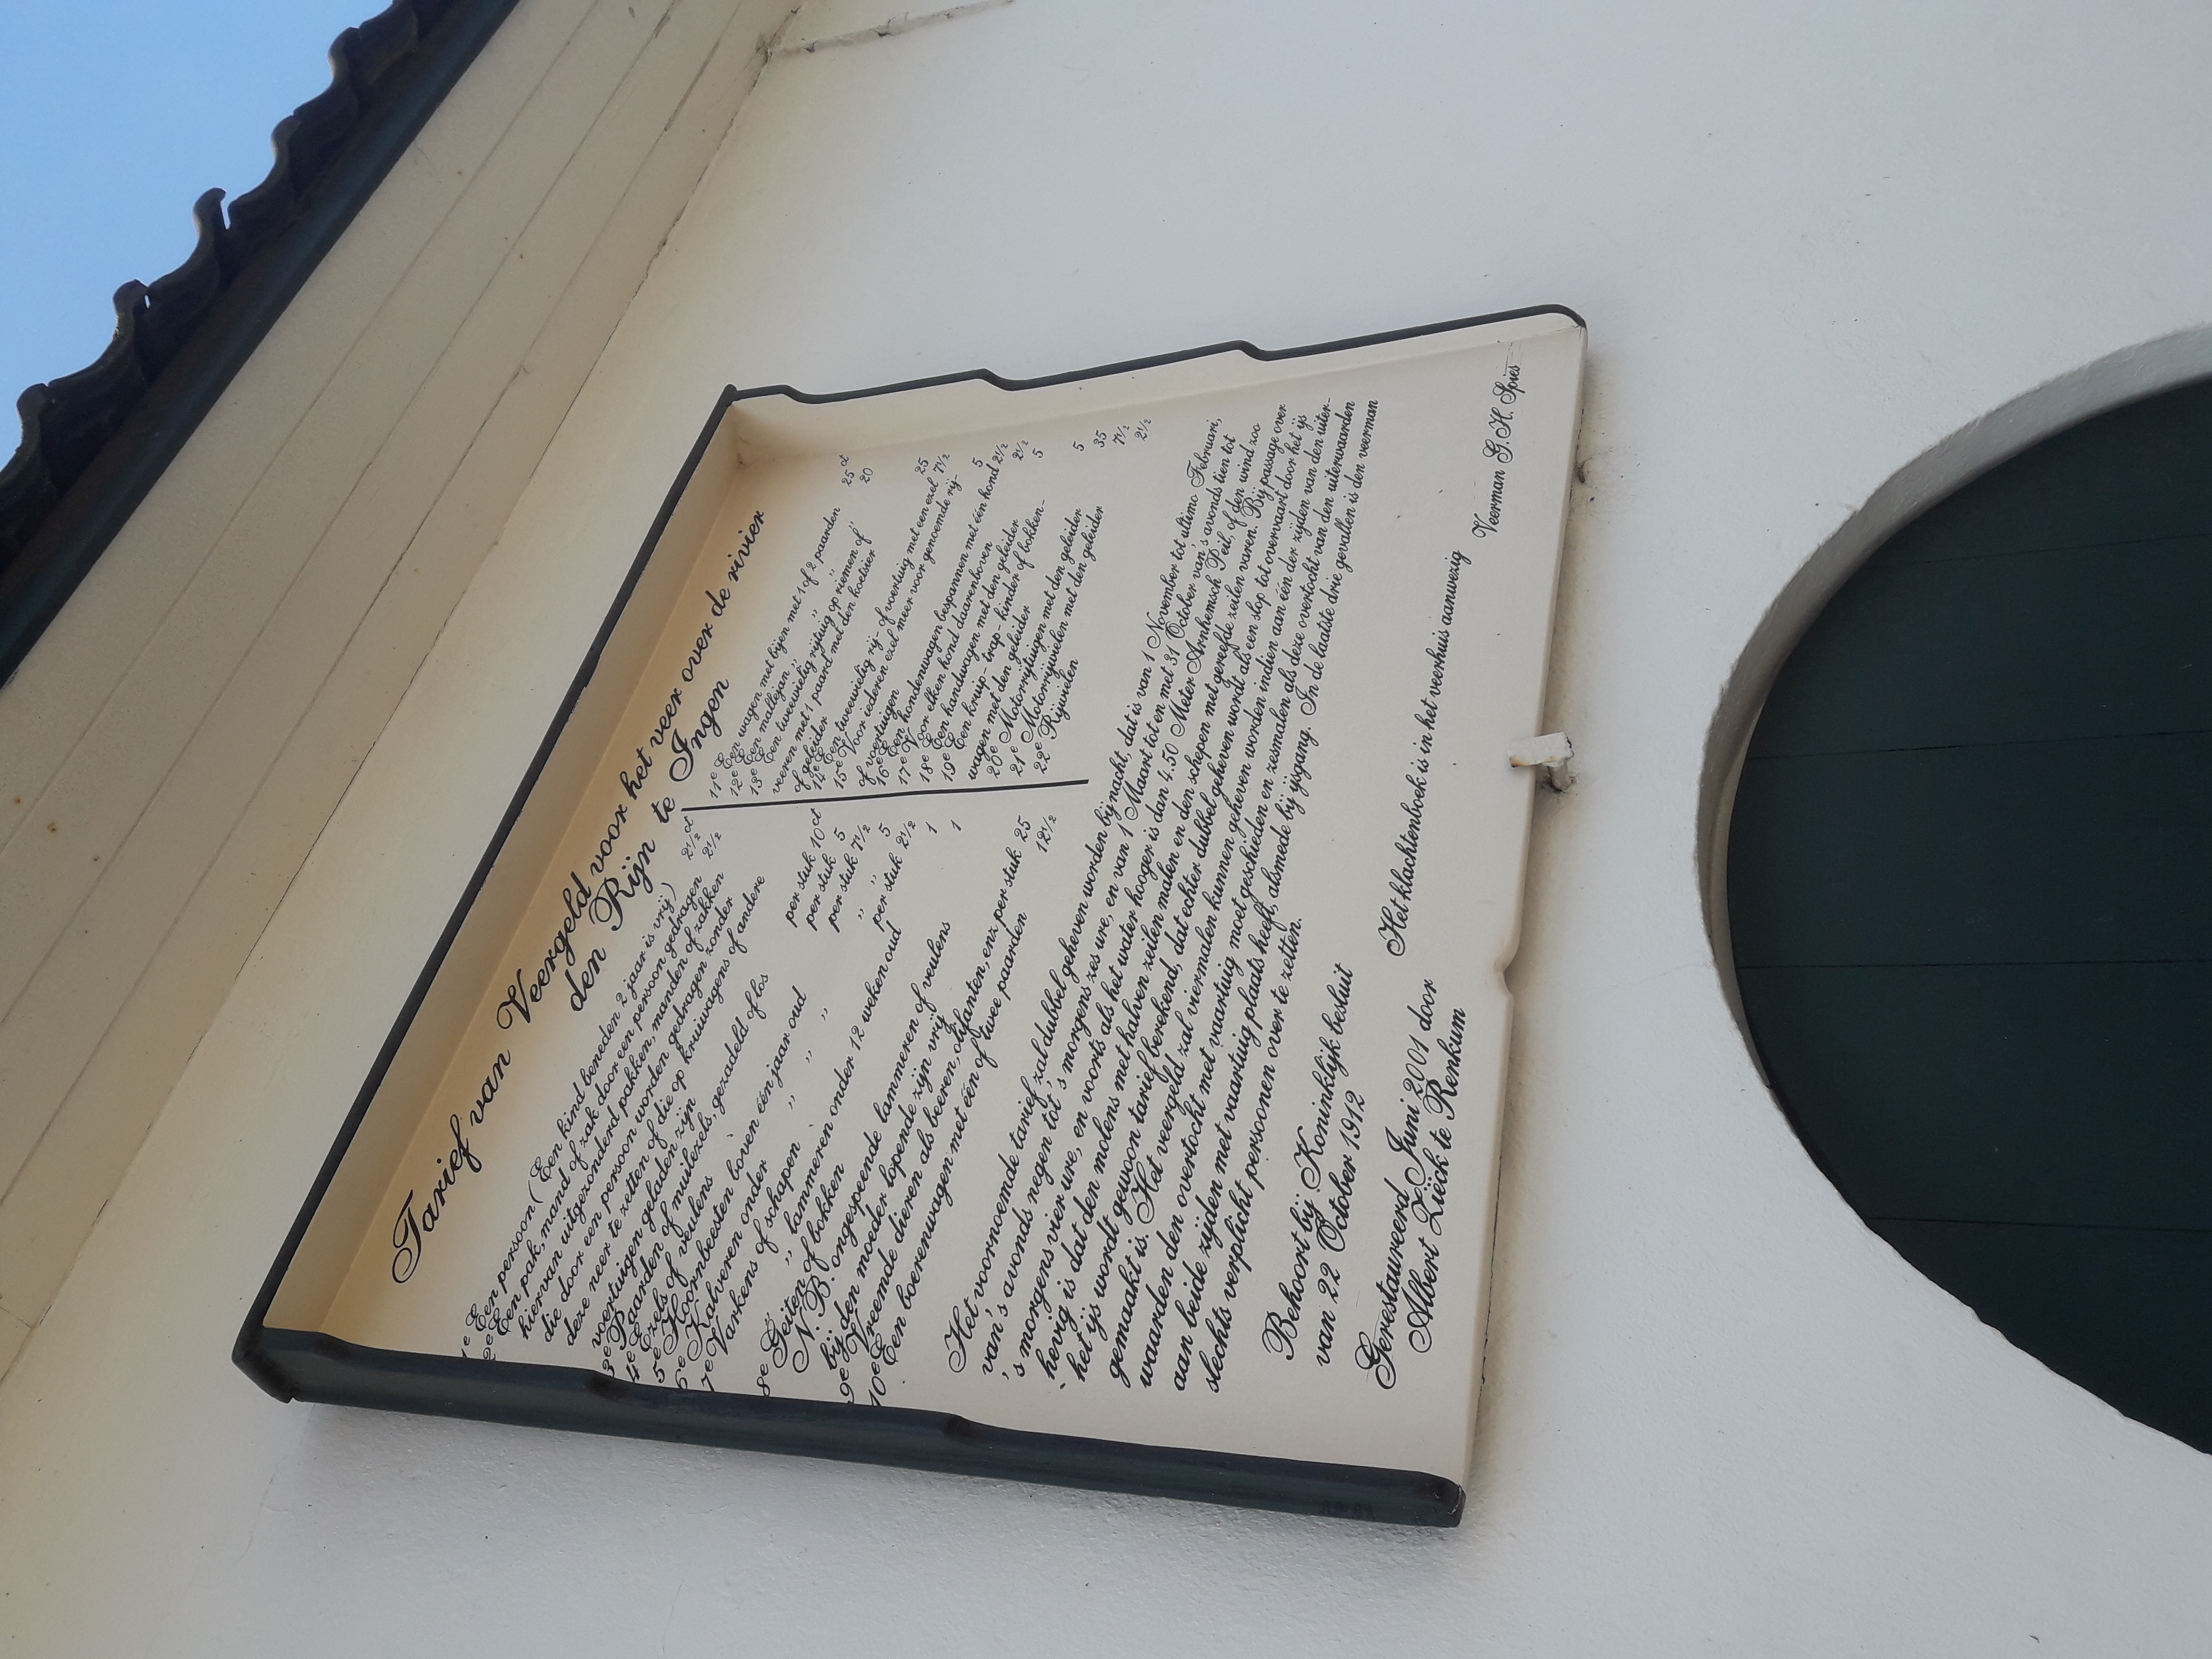 Tarief van Veergeld voor het veer over de rivier
den Rijn te Ingen
1e Een persoon (Een kind beneden 2 jaar is vrij) 2½ ct
2e Een pak, mand of zak door een persoon gedragen 2½
hiervan uitgezonderd pakken, manden of zakken
die door een persoon worden gedragen zonder
deze neer te zetten of die op kruiwagens of andere
voertuigen geladen zijn
3e Paarden of muilezels, gezadeld of los per stuk 10 ct
4e Ezels of veulens per stuk 5
5e Hoornbeesten boven één jaar oud per stuk 7½
6e Kalveren onder " " " " " 5
7e Varkens of schapen per stuk 2½
" lammeren onder 12 weken oud 1
8e Geiten of bokken 1
N.B. ongespeende lammeren of veulens
bij den moeder lopende zijn vrij
9e Vreemde dieren als beeren, olifanten, enz. per stuk 25
10e Een boerenwagen met één of twee paarden 12½
11e Een wagen met bijen met 1 of 2 paarden 25 ct
12e Een mallejan " " " 20
13e Een tweewielig rijtuig op riemen of
veeren met 1 paard met den koetsier
of geleider 25
14e Een tweewielig rij- of voertuig met een ezel 7½
15e Voor iederen ezel meer voor genoemde rij-
of voertuigen 5
16e Een hondenwagen bespannen met één hond 2½
17e Voor elken hond daarenboven 2½
18e Een handwagen met den geleider 5
19e Een kruip- trap- kinder of bokken-
wagen met den geleider 5
20e Motorrijtuigen met den geleider 35
21e Motorrijwielen met den geleider 7½
22e Rijwielen 2½
Het voornoemde tarief zal dubbel geheven worden bij nacht, dat is van 1 November tot ultimo Februari,
van 's avonds negen tot 's morgens zes ure, en van 1 Maart tot en met 31 October van 's avonds tien tot
's morgens vier ure, en voorts als het water hooger is dan 4.50 Meter Arnhemsch Peil, of den wind zoo
hevig is dat den molens met halven zeilen malen en den schepen met gereefde zeilen varen. Bij passage over
het ijs wordt gewoon tarief berekend, dat echter dubbel geheven wordt als een slop tot overvaart door het ijs
gemaakt is. Het veergeld zal viermalen kunnen geheven worden indien aan één der zijden van den uiter-
waarden den overtocht met vaartuig moet geschieden en zesmalen als deze overtocht van den uiterwaarden
aan beide zijden met vaartuig plaats heeft, alsmede bij ijsgang. In de laatste drie gevallen is den veerman
slechts verplicht personen over te zetten.
Behoort bij Koninklijk besluit
van 22 October 1912
Het klachtenboek is in het veerhuis aanwezig
Veerman G.H. Spies
Gerestaureerd Juni 2001 door
Albert Zieck te Renkum